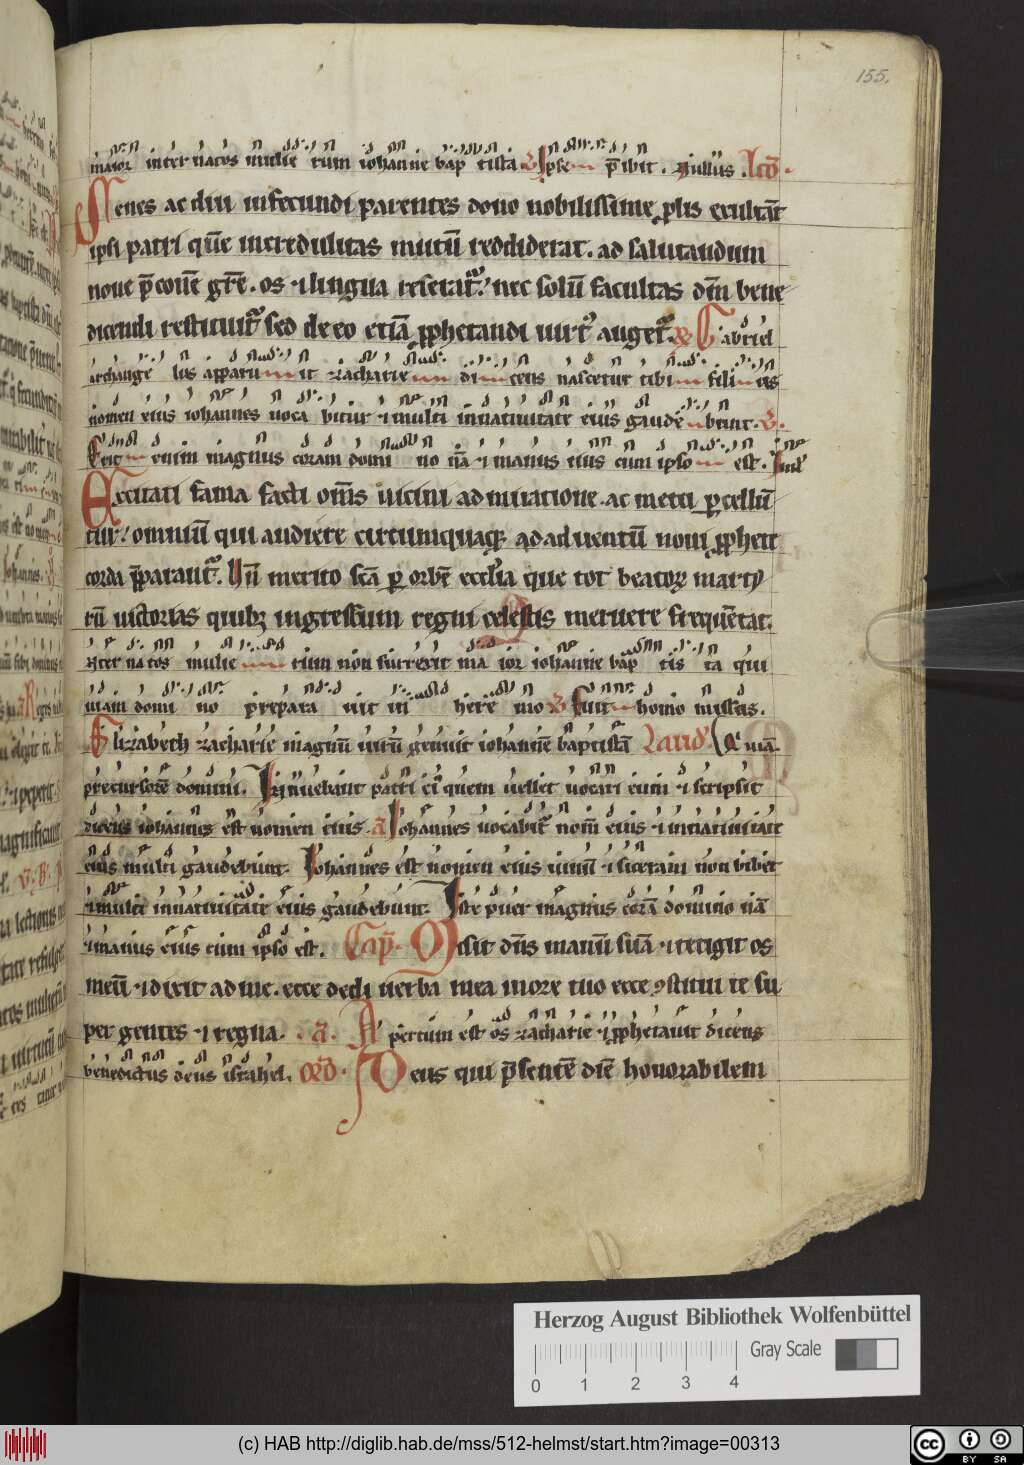 155.
maior inter natos mulie rum iohanne bap tista. V Ipse p̄ibit. Nullus. Lcō.
Senes ac diu infecundi parentes dono nobilissime ꝓlis exultāt
ipsi patri quē incredulitas mutū reddiderat. ad salutandum
noue p̄conē grē. os ⁊ lingua reserat᷑. nec solū facultas dm̄ bene
dicendi restituit᷑ sed de eo etiā ꝓphetandi uirt᷒ auget᷑. R Gabriel
archange lus apparu it zacharie di cens nascetur tibi filius
nomen eius iohannes uoca bitur ⁊ multi in natiuitate eius gaude bunt. V.
Erit enim magnus coram domi no nā ⁊ manus eius cum ipso est.
Excitati fama facti om̄s uicini ad miratione. ac metu ꝑcellū
tur. omniū qui audiere circumquaqꝫ ad aduentū noui ꝓphete
corda p̄parant᷑. Un̄ merito sc̄a ꝑ orbē eccl̄ia que tot beatoꝝ marty
rū uictorias quibꝫ ingressum regni celestis meruere frequētat.
Inter natos mulie rum non surrexit ma ior iohanne bap tis ta qui
uiam domi no prepara uit in here mo V Fuit homo missus.
Elizabeth zacharie magnū uirū genuit iohannē baptistā Laud᷒.
precursorē domini. Innuebant patri ei᷒ quem uellet uocari eum ⁊ scripsit
dicens iohannes est nomen eius. a Iohannes uocabit᷑ nom̄ eius ⁊ in natiuitate
eius multi gaudebunt. Iohannes est nomen eius uinū ⁊ siceram non bibet
⁊ multi in natiuitate eius gaudebunt. Iste puer magnus corā domino nā
⁊ manus eius cum ipso est. Cap̄. Misit dn̄s manū suā ⁊ tetigit os
meū ⁊ dixit ad me. ecce dedi uerba mea in ore tuo ecce ꝯstitui te su
per gentes ⁊ regna. a. Apertum est os zacharie ⁊ ꝓphetauit dicens
benedictus deus israhel. Orō. Deus qui p̄sentē diē honorabilem
Herzog August Bibliothek Wolfenbüttel
Gray Scale
0 1 2 3 4
(c) HAB http://diglib.hab.de/mss/512-helmst/start.htm?image=00313
cc BY SA